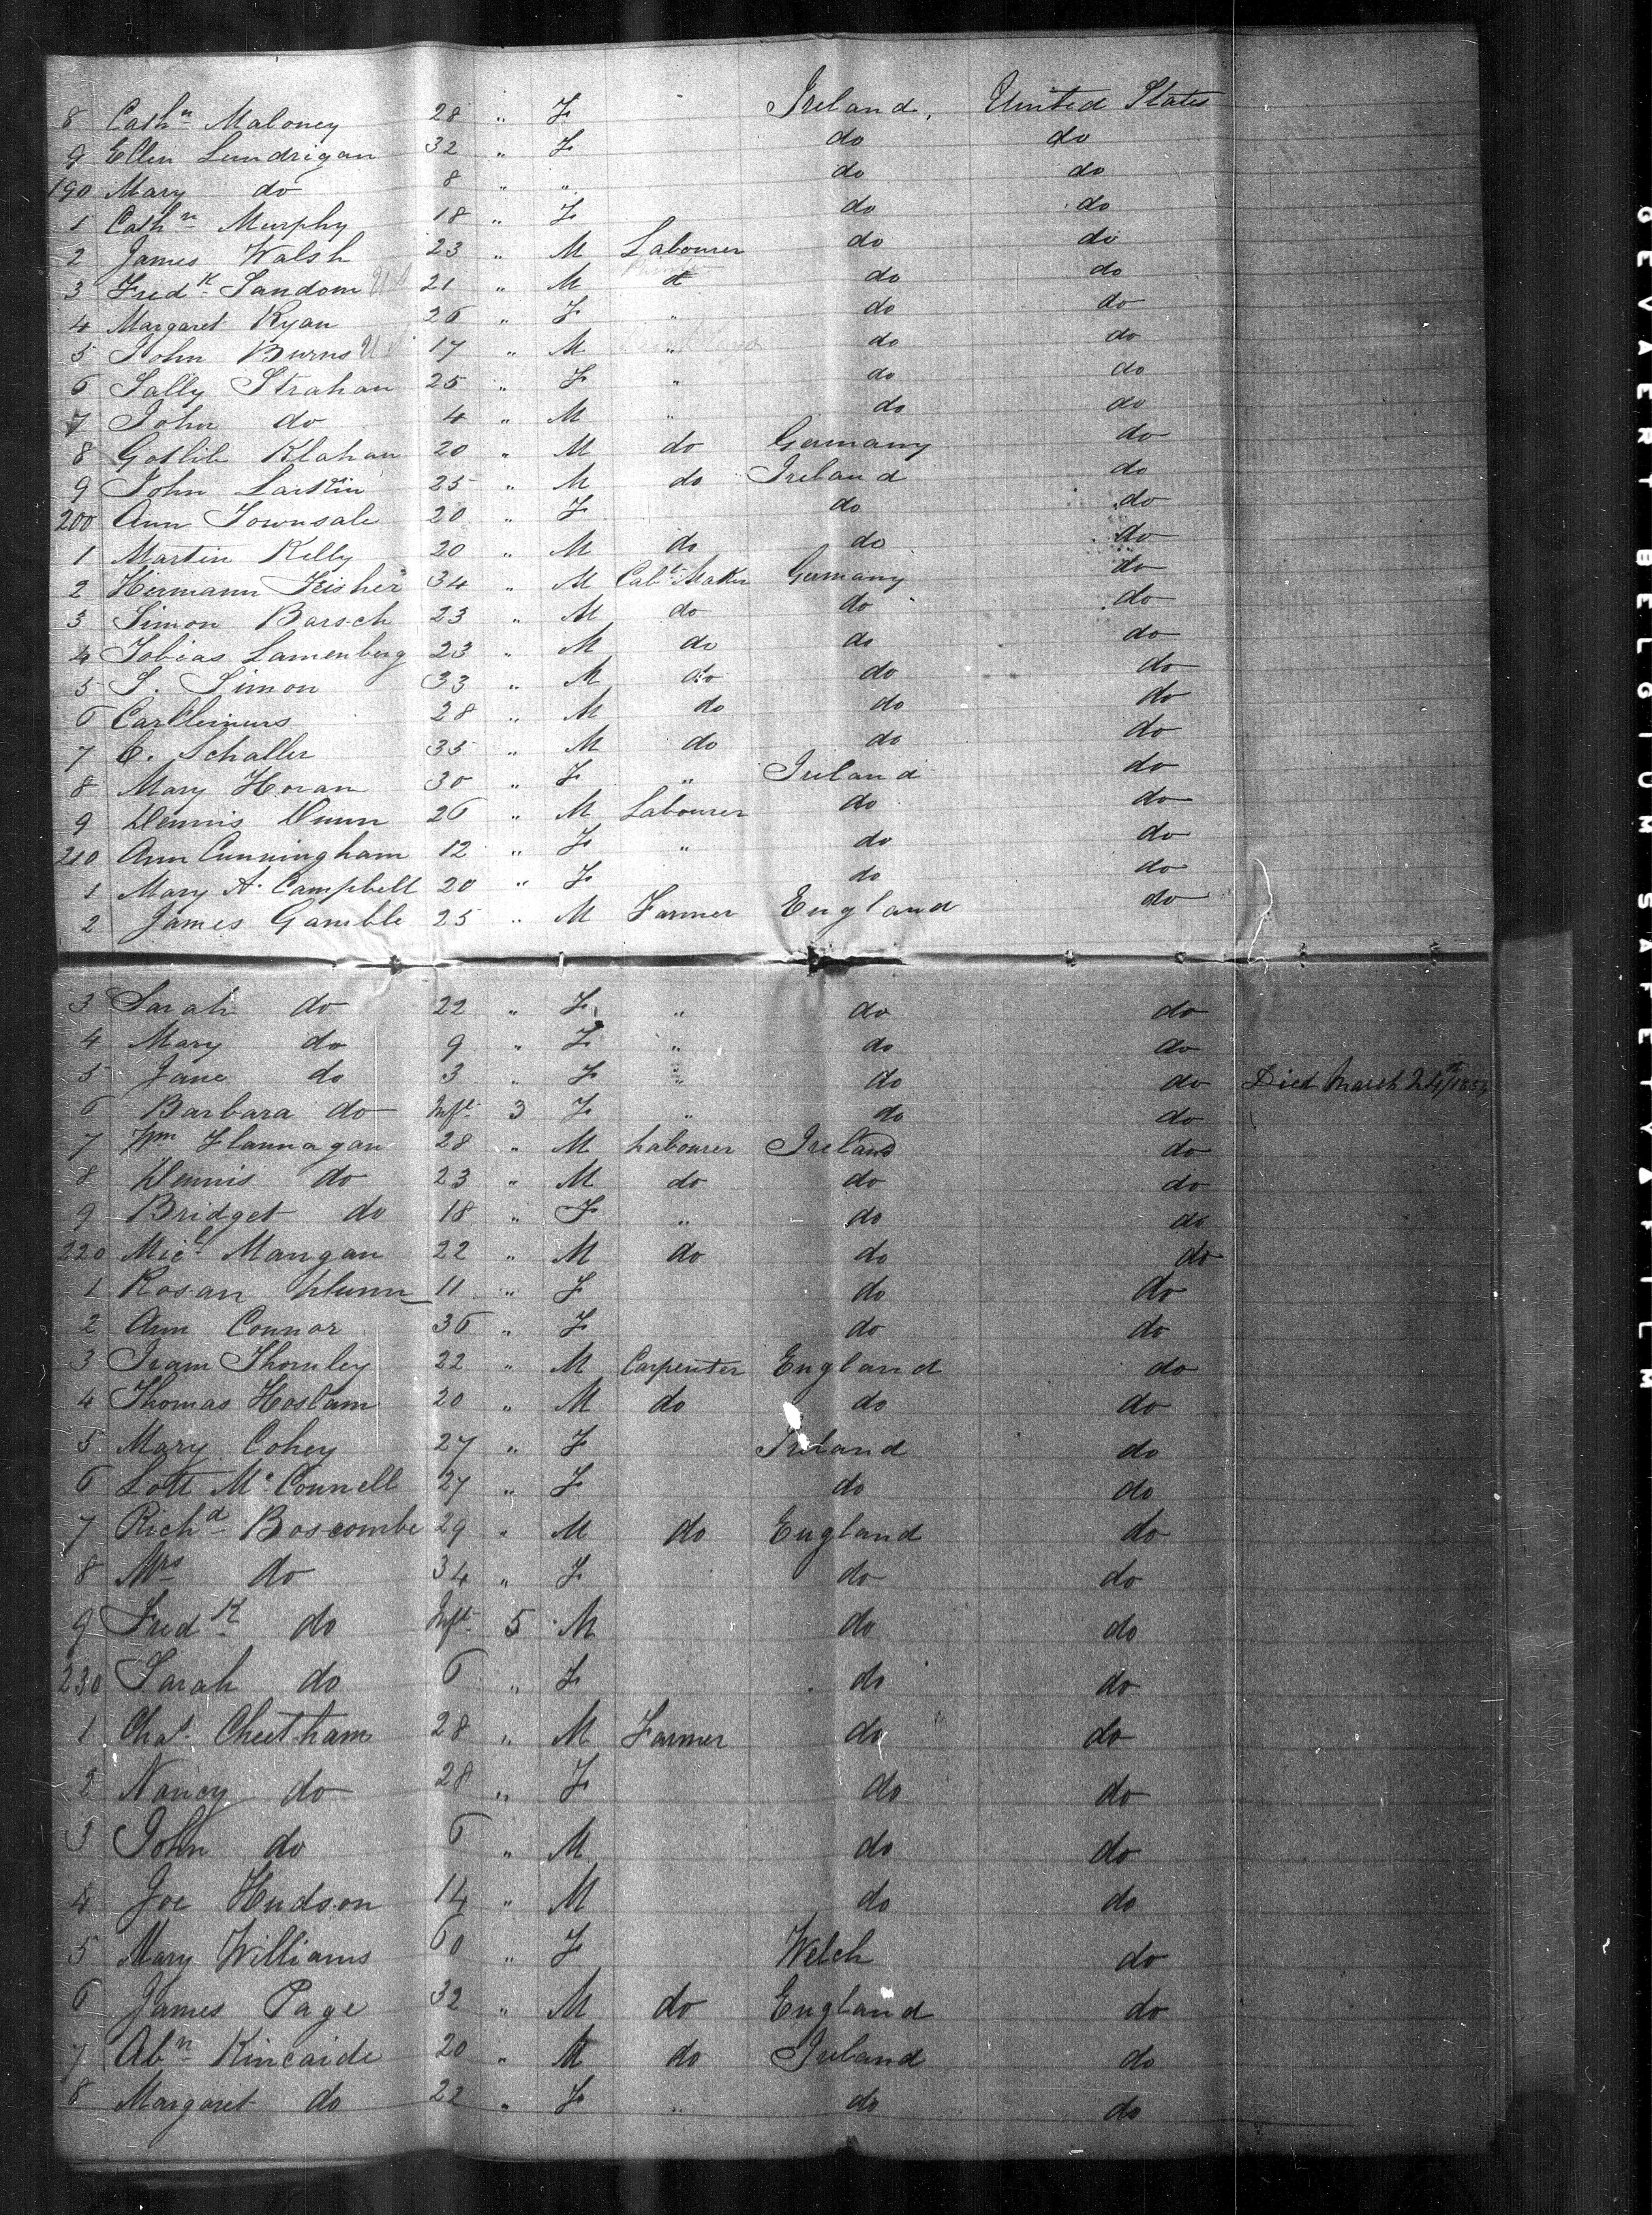 8 Cathn Maloney 28 " F Ireland, United States
9 Ellen Lundrigan 32 " F do do
190 Mary do 8 " " do do
1 Cathn Murphy 18 " F do do
2 James Walsh 23 " M Labourer do do
3 Fredk Sandom 21 " M do do
4 Margaret Ryan 26 " F " do do
5 John Burns 17 " M " do do
6 Sally Strahan 25 " F " do do
7 John do 4 " M " do do
8 Gotlib Klahan 20 " M do Germany do
9 John Larkin 25 " M do Ireland do
200 Ann Townsale 20 " F do do
1 Martin Kelly 20 " M do do do
2 Hermann Feisher 34 " M Cabt Maker Germany do
3 Simon Barsch 23 " M do do do
4 Tobias Lamenberg 23 " M do do do
5 S. Simon 33 " M do do do
6 28 " M do do do
7 C. Schaller 35 " M do do do
8 Mary Horan 30 " F " Ireland do
9 Dennis Dunn 26 " M Labourer do do
210 Ann Cunningham 12 " F " do do
1 Mary A. Campbell 20 " F do do
2 James Gamble 25 " M Farmer England do
3 Sarah do 22 " F " do do
4 Mary do 9 " F " do do
5 Jane do 3 " F " do do Died March 24th/
6 Barbara do Inft 3 F " do do
7 Wm Flannagan 28 " M Labourer Ireland do
8 Dennis do 23 " M do do do
9 Bridget do 18 " F " do do
220 Micl Mangan 22 " M do do do
1 Rosan Dunn 11 " F do do
2 Ann Connor 36 " F do do
3 Iram Thornley 22 " M Carpenter England do
4 Thomas Haslam 20 " M do do do
5 Mary Cohey 27 " F Ireland do
6 Lott McConnell 27 " F do do
7 Richd Boscombe 29 " M do England do
8 Mrs do 34 " F do do
9 Fredk do Inft 5 M do do
230 Sarah do 6 " F do do
1 Chas Cheetham 28 " M Farmer do do
2 Nancy do 28 " F do do
3 John do 6 " M do do
4 Joe Hudson 14 " M do do
5 Mary Williams 60 " F Welch do
6 James Page 32 " M do England do
7 Abm Kincaide 20 " M do Ireland do
8 Margaret do 22 " F " do do
GEVAERT BELGIUM SAFETY FILM